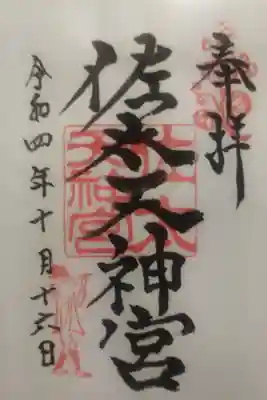 奉拝
佐太天神宮
令和四年十月十六日